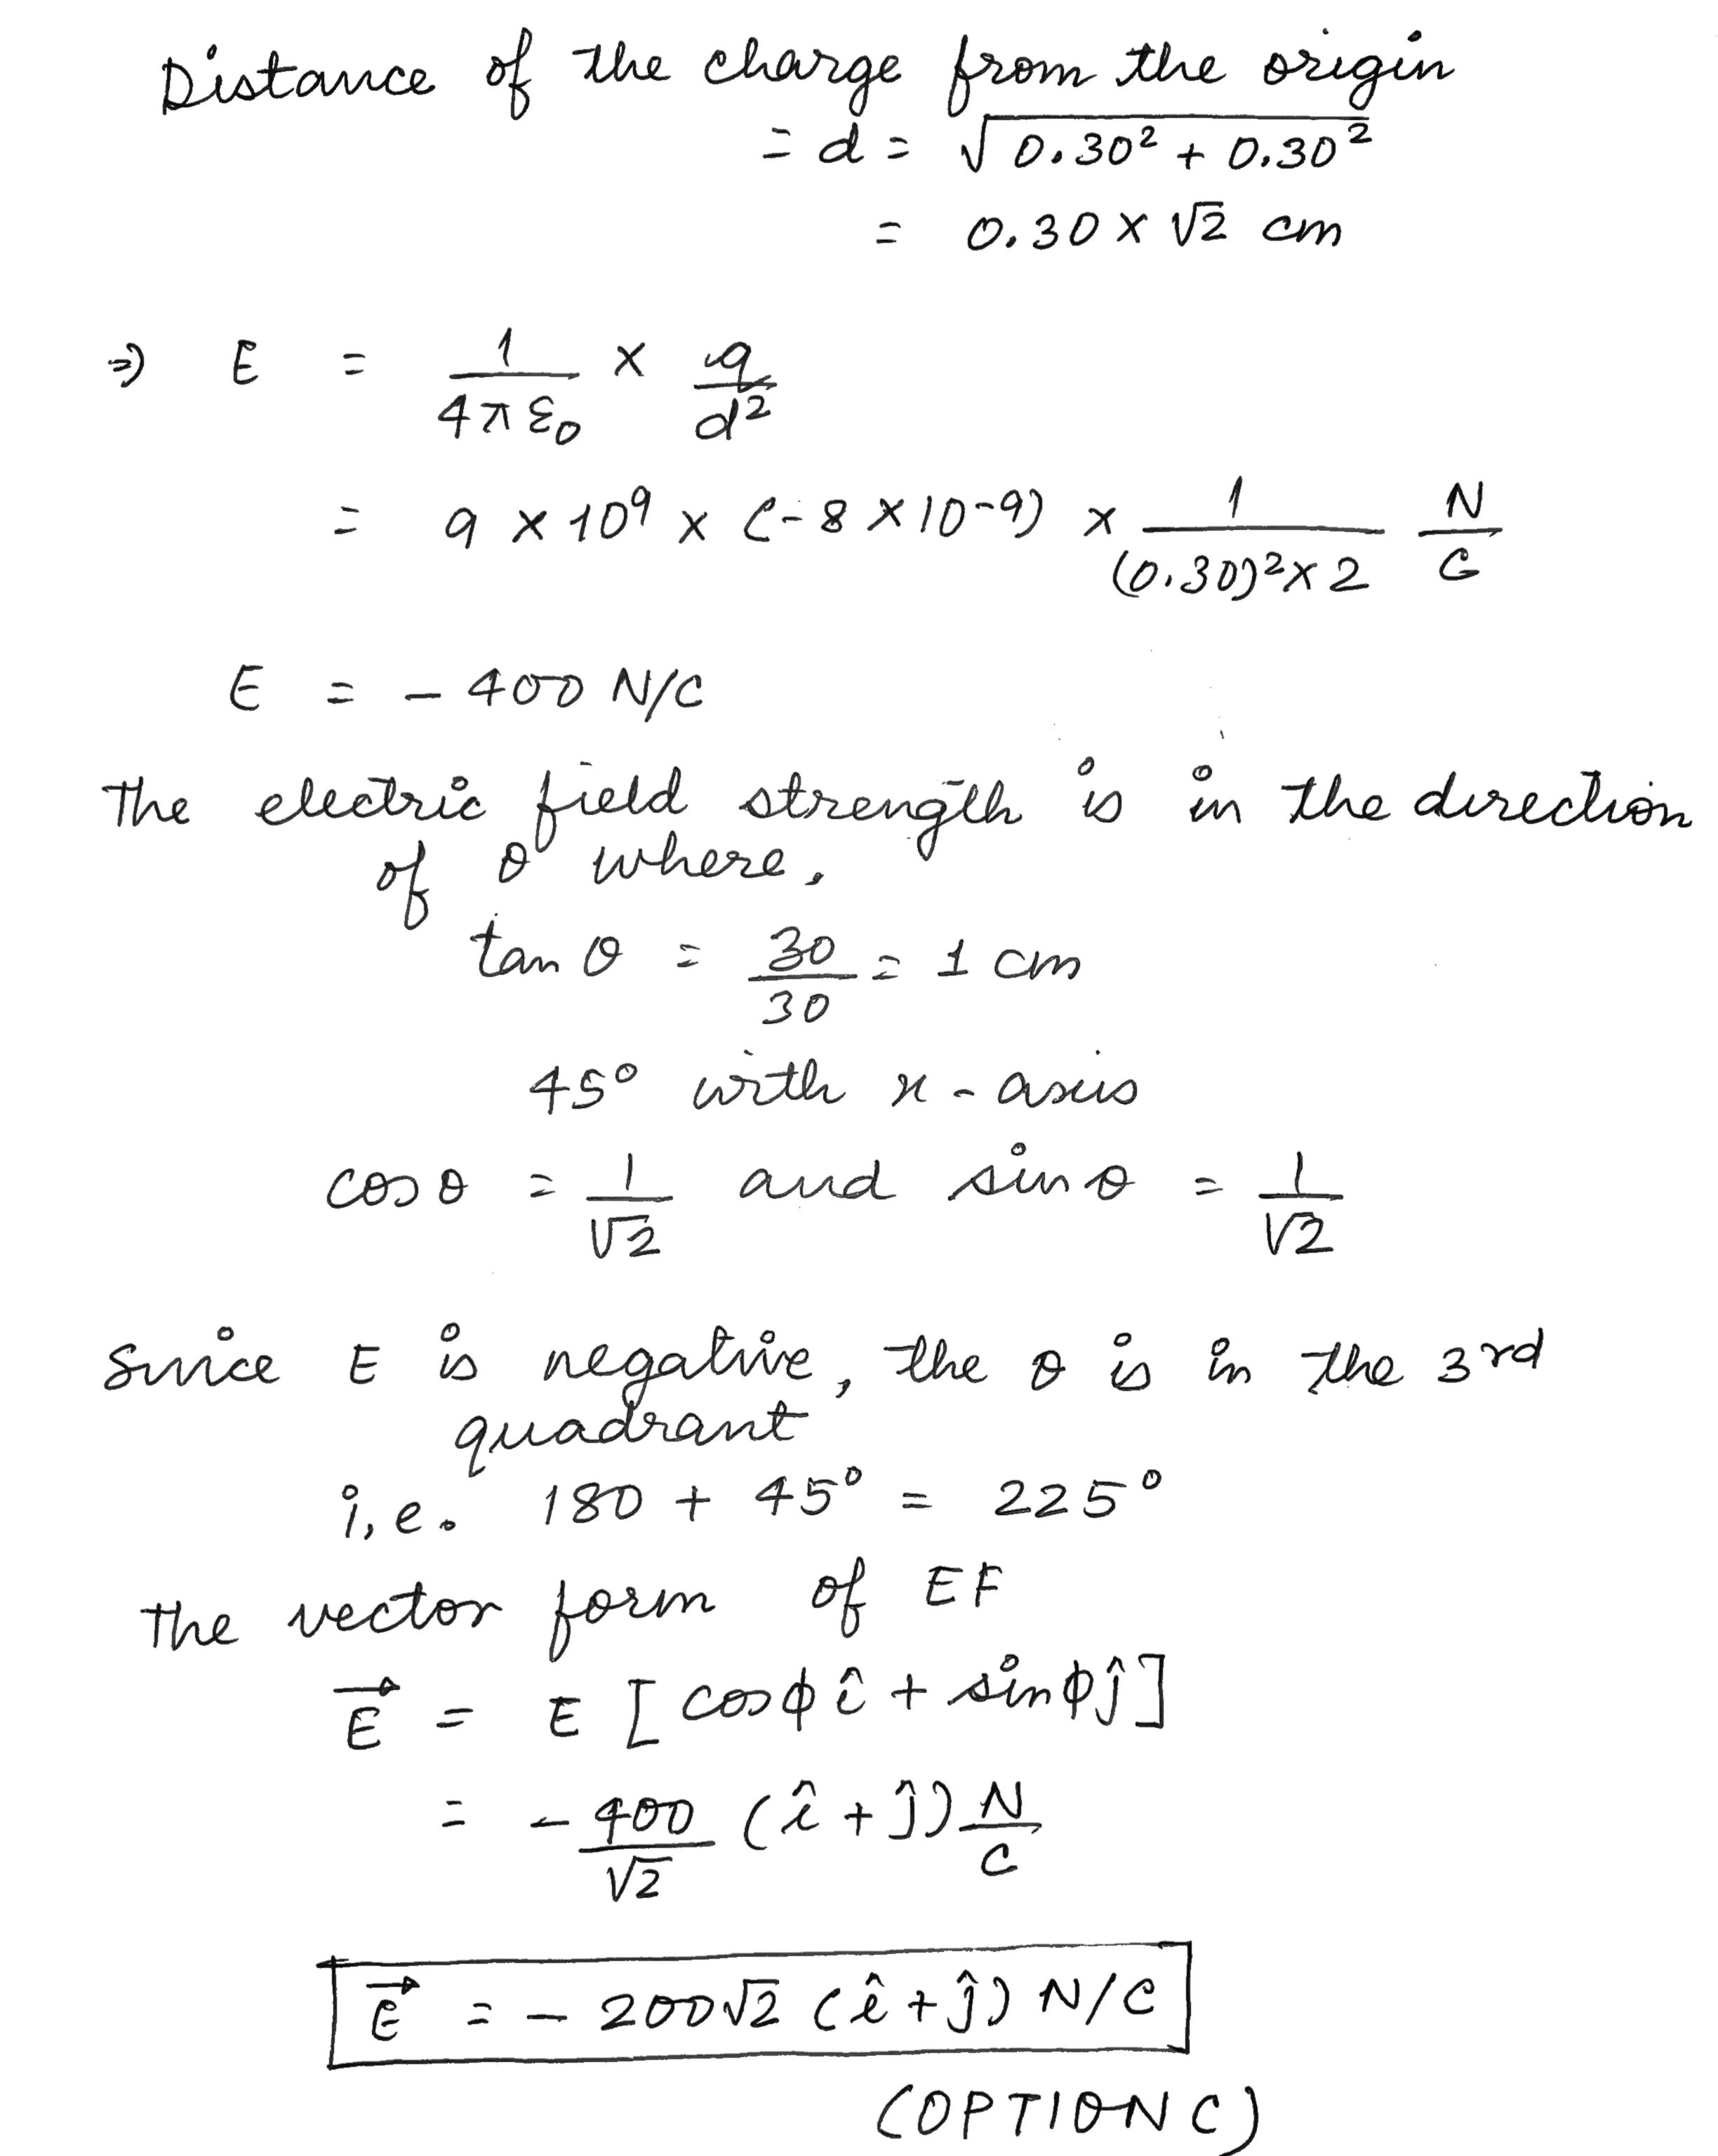 Distance of the charge from the origin
= d = √0.30² + 0.30²
= 0.30 × √2 cm
⇒) E = 1/4πε₀ × q/d²
= 9 × 10⁹ × (-8 × 10-9) × 1/(0.30)²×2 N/C
E = - 400 N/C
The electric field strength is in the direction
of θ where,
tan θ = 30/30 = 1 cm
45° with x-axis
cos θ = 1/√2 and sin θ = 1/√2
Since E is negative, the θ is in the 3rd
quadrant
i.e. 180 + 45° = 225°
The vector form of EF
E⃗ = E [cosϕ î + sinϕ ĵ]
= - 400/√2 (î + ĵ) N/C
E⃗ = - 200√2 (î + ĵ) N/C
(OPTION C)